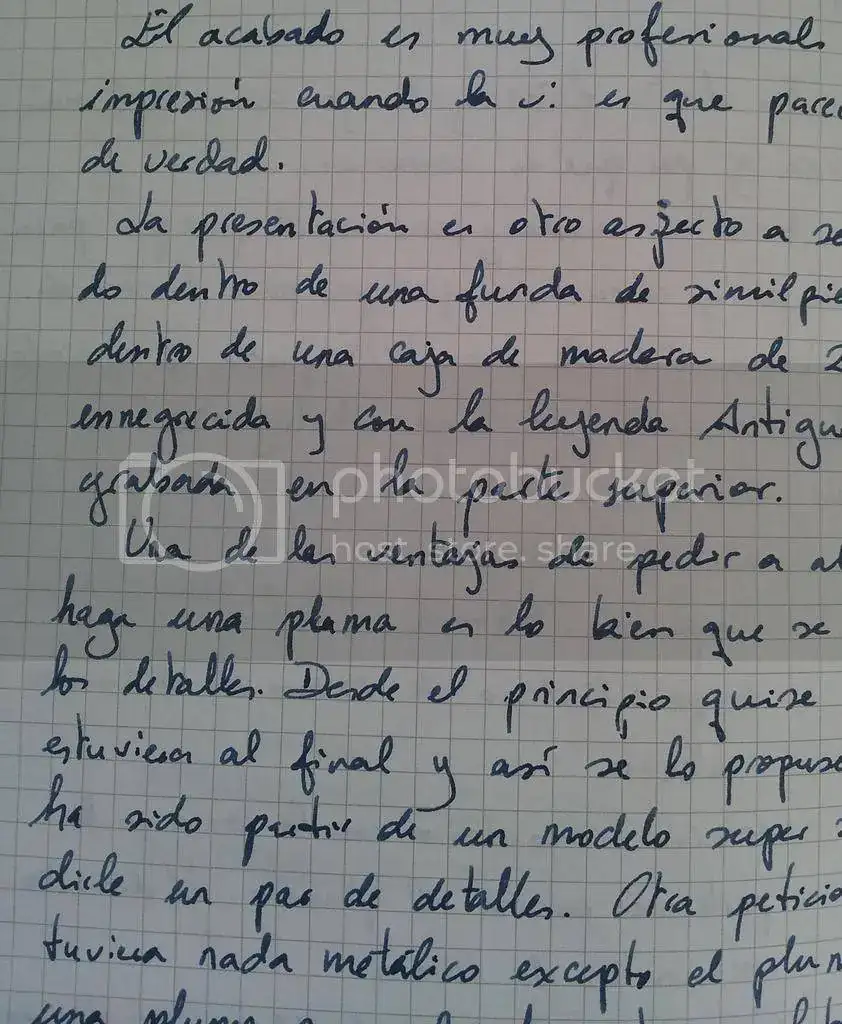 El acabado es muy profesional
impresión cuando la vi es que parec
de verdad.
La presentación es otro aspecto a se
do dentro de una funda de similpie
dentro de una caja de madera de 2
ennegrecida y con la leyenda Antigu
grabada en la parte superior.
photobucket
host. store. share.
Una de las ventajas de pedir a al
haga una pluma es lo bien que se
los detalles. Desde el principio quise
estuviera al final y así se lo propuse
ha sido partir de un modelo super
dirle un par de detalles. Otra petició
tuviera nada metálico excepto el plum
una